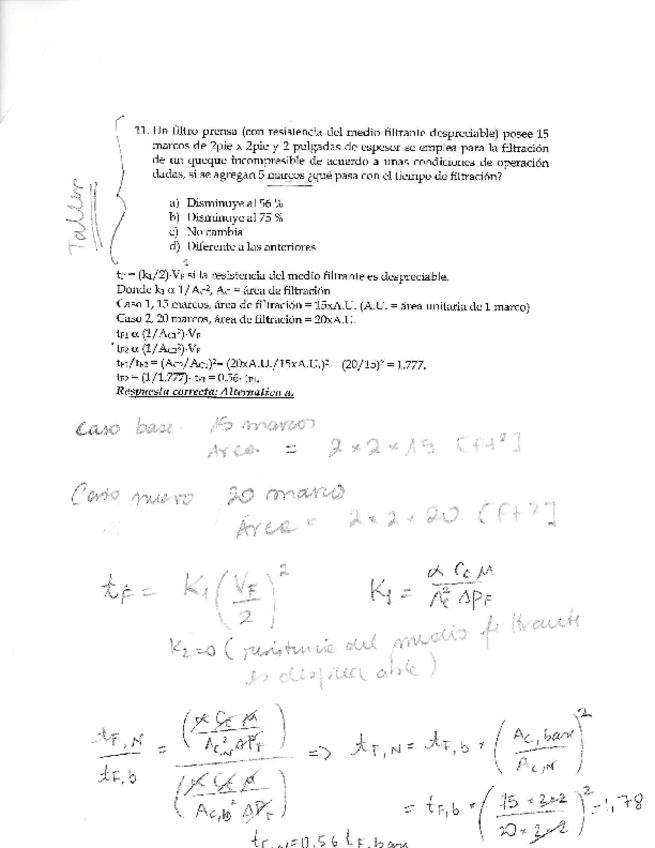 Taller
11. Un filtro prensa (con resistencia del medio filtrante despreciable) posee 15
marcos de 2pie x 2pie y 2 pulgadas de espesor se emplea para la filtración
de un queque incompresible de acuerdo a unas condiciones de operación
dadas, si se agregan 5 marcos ¿qué pasa con el tiempo de filtración?
a) Disminuye al 56 %
b) Disminuye al 75 %
c) No cambia
d) Diferente a las anteriores
tF = (k1/2)·VF² si la resistencia del medio filtrante es despreciable.
Donde k1 α 1/AC², AC = área de filtración
Caso 1, 15 marcos, área de filtración = 15xA.U. (A.U. = área unitaria de 1 marco)
Caso 2, 20 marcos, área de filtración = 20xA.U.
tF1 α (1/AC1²)·VF
tF2 α (1/AC2²)·VF
tF1/tF2 = (AC2/AC1)² = (20xA.U./15xA.U.)² = (20/15)² = 1.777.
tF2 = (1/1.777)· tF1 = 0.56· tF1.
Respuesta correcta: Alternativa a.
Caso base 15 marcos
Area = 2 x 2 x 15 [ft²]
Caso nuevo 20 marco
Área = 2 x 2 x 20 [ft²]
tF = K1 (VF/2)² K1 = α Cc μ / Ac² ΔPF
K2=0 (resistencia del medio filtrante
es despreciable)
tF,N / tF,b = (α Cc μ / Ac,N² ΔPF) / (α Cc μ / Ac,b² ΔPF) => tF,N = tF,b * (Ac,base / Ac,N)²
= tF,b * (15 x 2x2 / 20 x 2x2)² = 1,78
tF,N=0.56 tF,base